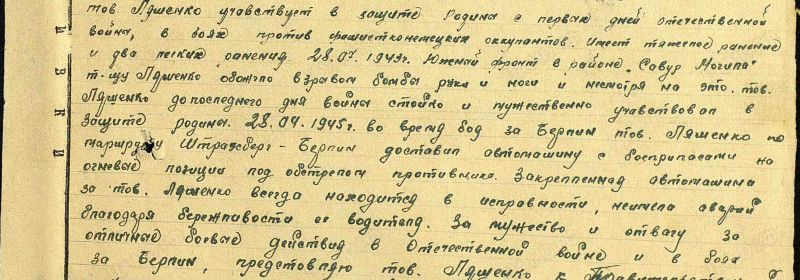 тов Ляшенко учавствует в защите Родины с первых дней отечественной
войны, в боях против фашистконемецких оккупантов. Имеет тяжелое ранение
и два легких ранения. 28.07.1943г. Южный фронт в районе "Савур Могила"
т-щу Ляшенко обожгло взрывом бомбы руки и ноги и несмотря на это. тов.
Ляшенко до последнего дня войны стойко и мужественно учавствовал в
защите родины. 28.04.1945г. во время боя за Берлин тов. Ляшенко по
маршруту Штрасберг - Берлин доставил автомашину с боеприпасами на
огневые позиции под обстрелом противника. Закрепленная автомашина
за тов. Ляшенко всегда находится в исправности, неимела аварий
благодаря бережливости ее водителя. За мужество и отвагу за
отличные боевые действия в Отечественной войне и в боях
за Берлин, представляю тов. Ляшенко к
И
В
К
И